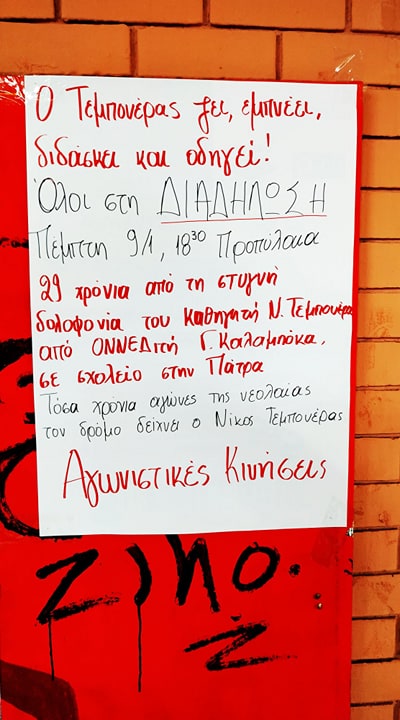 Ο Τεμπονέρας ζει, εμπνέει,
διδάσκει και οδηγεί!
Όλοι στη ΔΙΑΔΗΛΩΣΗ
Πέμπτη 9/1, 18³⁰ Προπύλαια
29 χρόνια από τη στυγνή
δολοφονία του καθηγητή Ν. Τεμπονέρα
από ΟΝΝΕΔίτη Γ. Καλαμπόκα,
σε σχολείο στην Πάτρα
Τόσα χρόνια αγώνες της νεολαίας
τον δρόμο δείχνει ο Νίκος Τεμπονέρας
Αγωνιστικές Κινήσεις